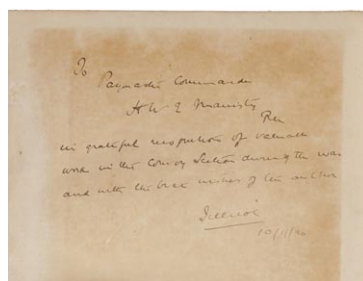 To
Paymaster Commander
H W E Manisty
RN
in grateful recognition of valuable
work in the Convoy Section during the war
and with the best wishes of the author
Jellicoe